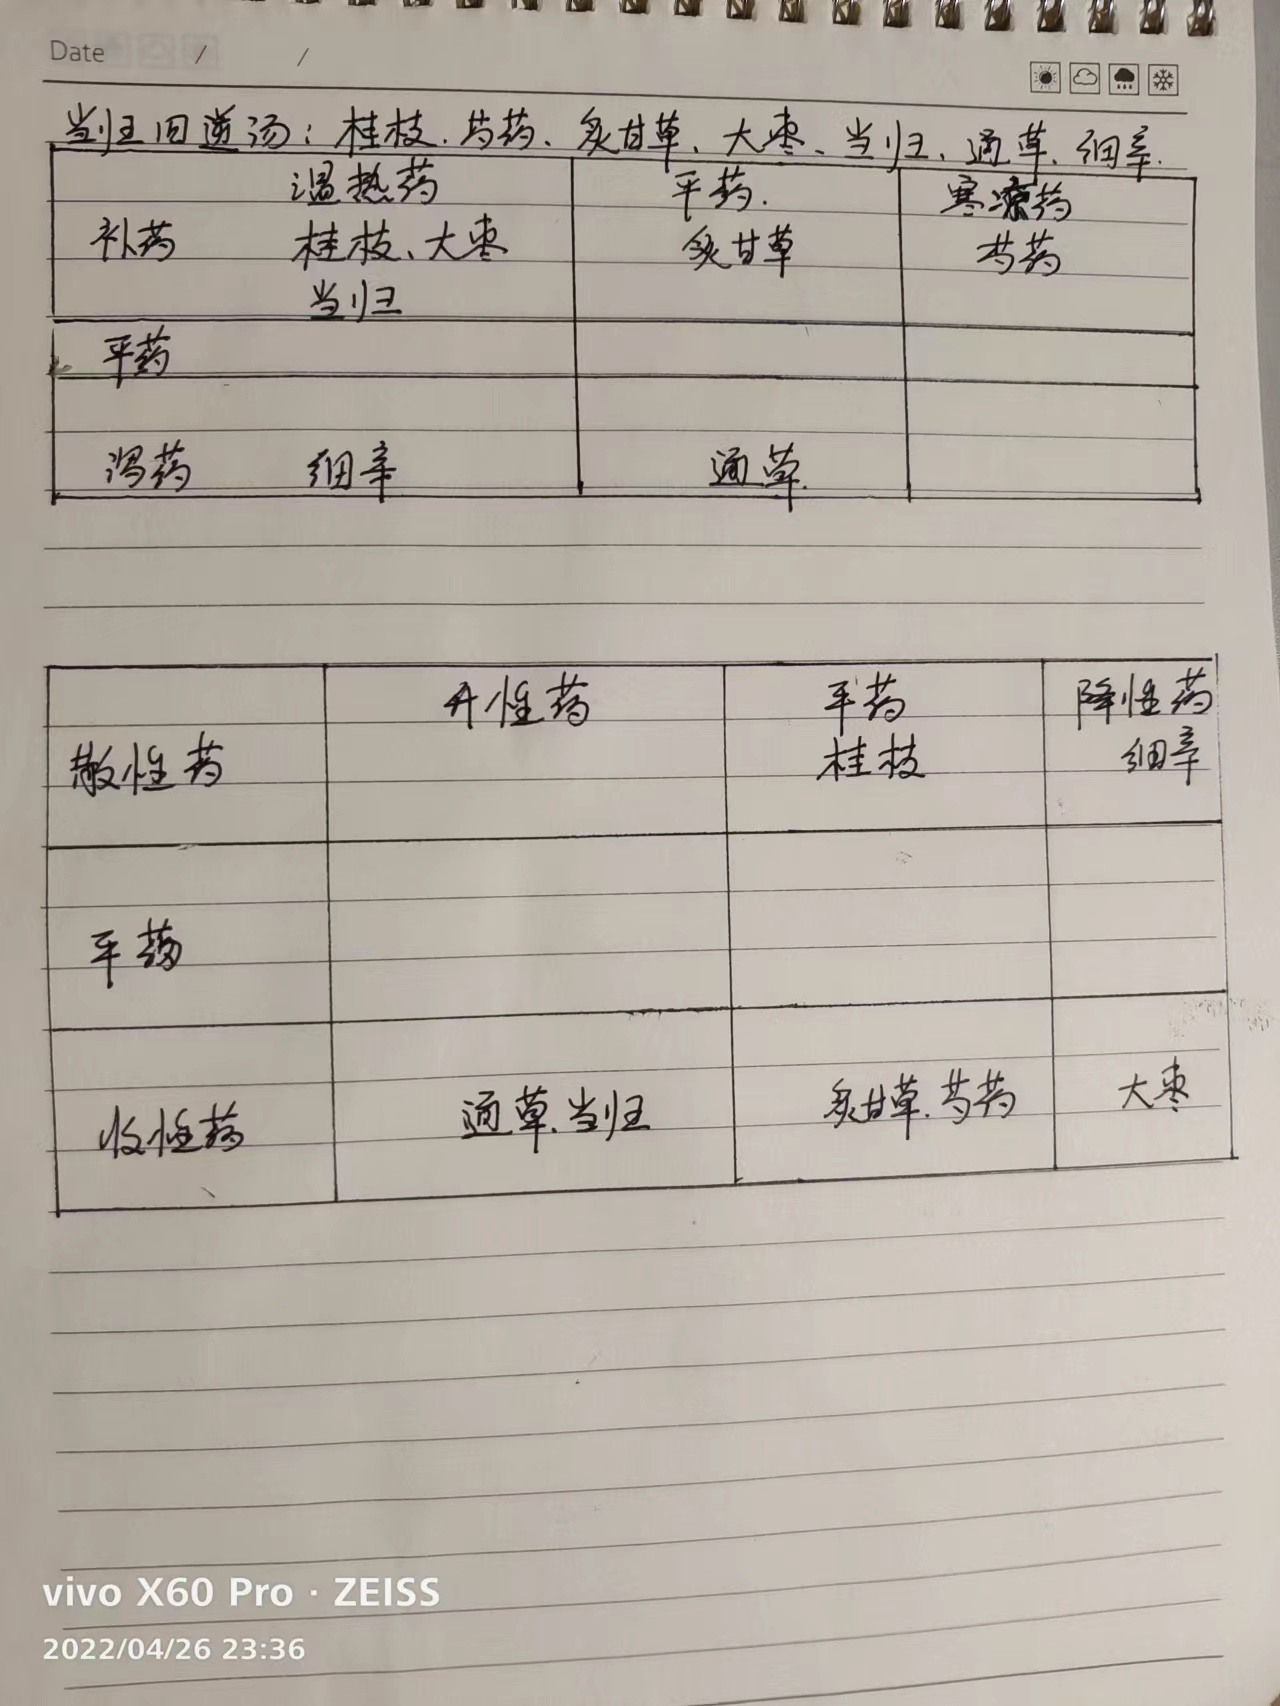 Date / /
当归四逆汤：桂枝、芍药、炙甘草、大枣、当归、通草、细辛.
温热药 平药. 寒凉药
补药 桂枝、大枣 炙甘草 芍药
当归
平药
泻药 细辛 通草.
升性药 平药 降性药
散性药 桂枝 细辛
平药
收性药 通草.当归 炙甘草.芍药 大枣
vivo X60 Pro · ZEISS
2022/04/26 23:36